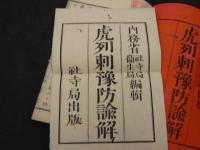 内務省社寺局衛生局編輯
虎列剌豫防諭解
社寺局出版
虎列剌豫防諭解